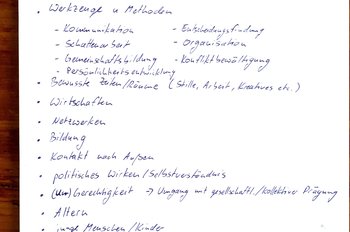 • Werkzeuge u Methoden
- Kommunikation - Entscheidungsfindung
- Schattenarbeit - Organisation
- Gemeinschaftsbildung - Konfliktbewältigung
- Persönlichkeitsentwicklung
• Bewusste Zeiten/Räume (Stille, Arbeit, Kreatives etc.)
• Wirtschaften
• Netzwerken
• Bildung
• Kontakt nach Außen
• politisches Wirken/Selbstverständnis
• (Un)Gerechtigkeit → Umgang mit gesellschaftl./kollektiver Prägung
• Altern
• junge Menschen/Kinder